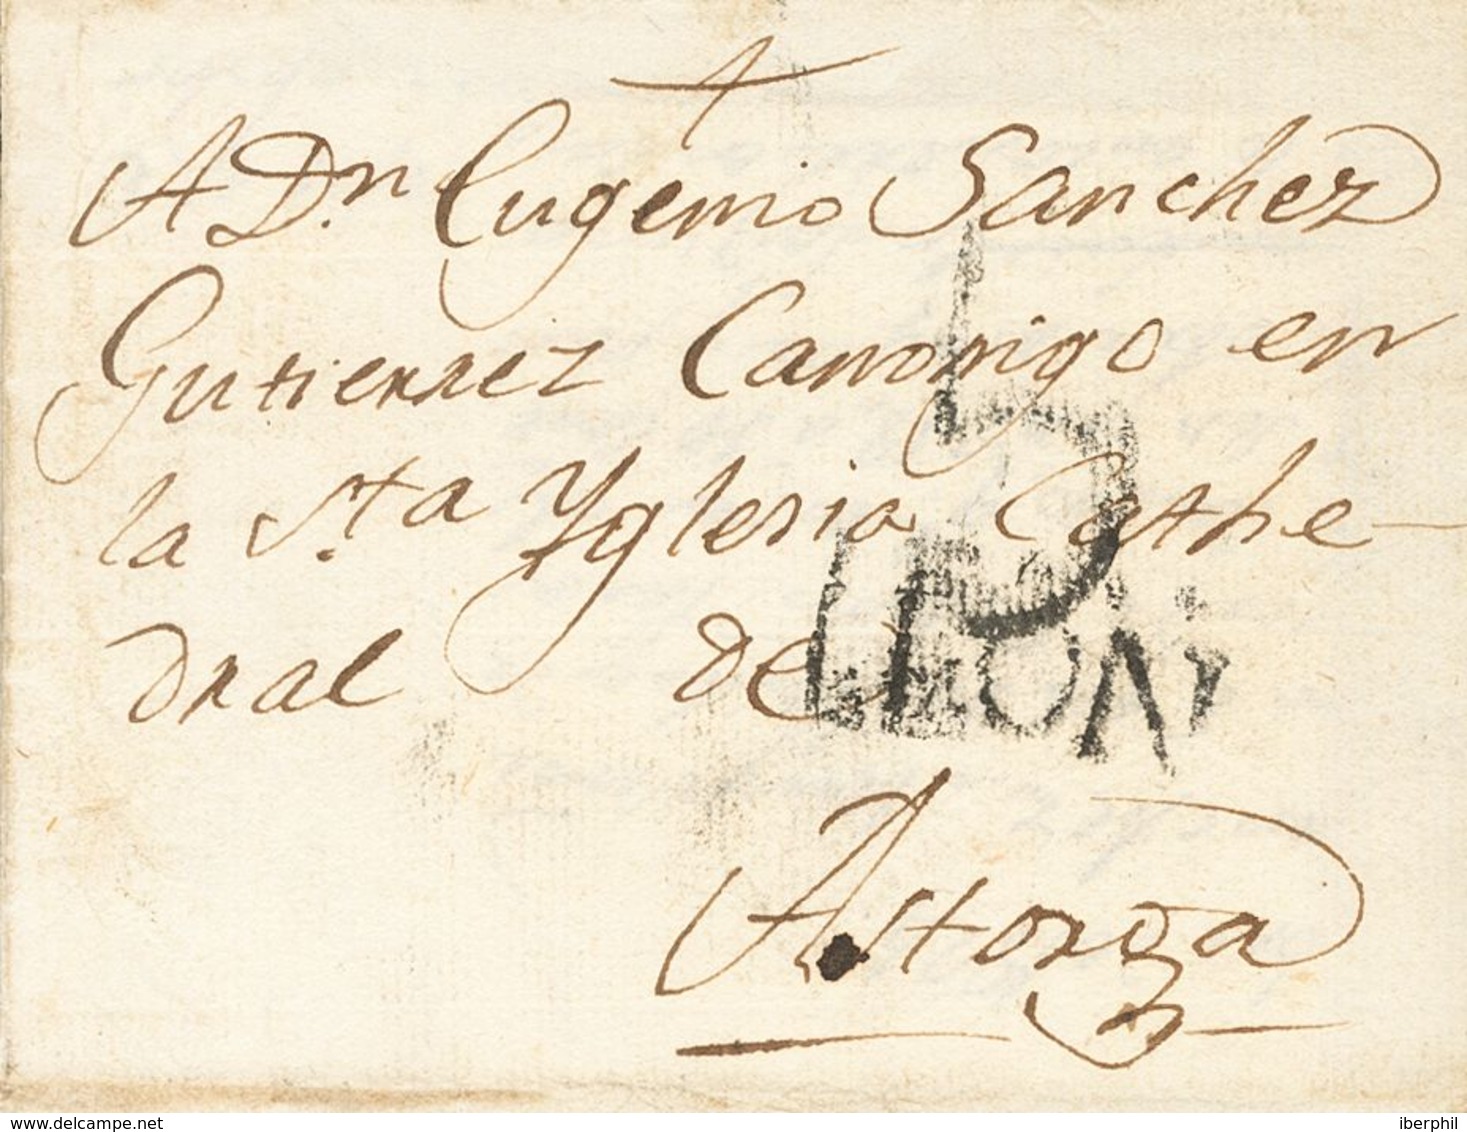 A Dn. Eugenio Sanchez
Gutierrez Canonigo en
la Sta. Yglesia Cathe-
dral de
5
LEON
Astorga
www.delcampe.net
iberphil